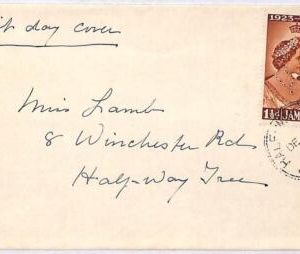 day cover
Miss Lamb
8 Winchester Rd
Half-Way Tree
1923-
1½d JAMA
HALF
DE